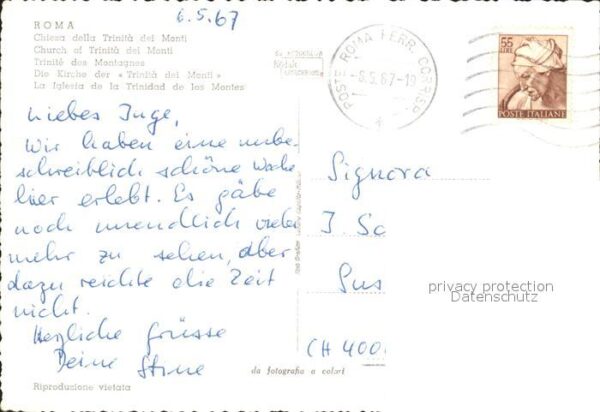 6.5.67
ROMA
Chiesa della Trinità dei Monti
Church of Trinità dei Monti
Trinité des Montagnes
Die Kirche der « Trinità dei Monti »
La Iglesia de la Trinidad de los Montes
Liebes Inge,
Wir haben eine unbe-
schreiblich schöne Woche
hier erlebt. Es gäbe
noch unendlich vieles
mehr zu sehen, aber
dazu reichte die Zeit
nicht.
Herzliche Grüsse
Deine
Riproduzione vietata
POSTE ROMA FERR. CORRISP.
6.5.67-19
55
LIRE
POSTE ITALIANE
Signora
J. Sc
CH 400
privacy protection
Datenschutz
da fotografia a colori